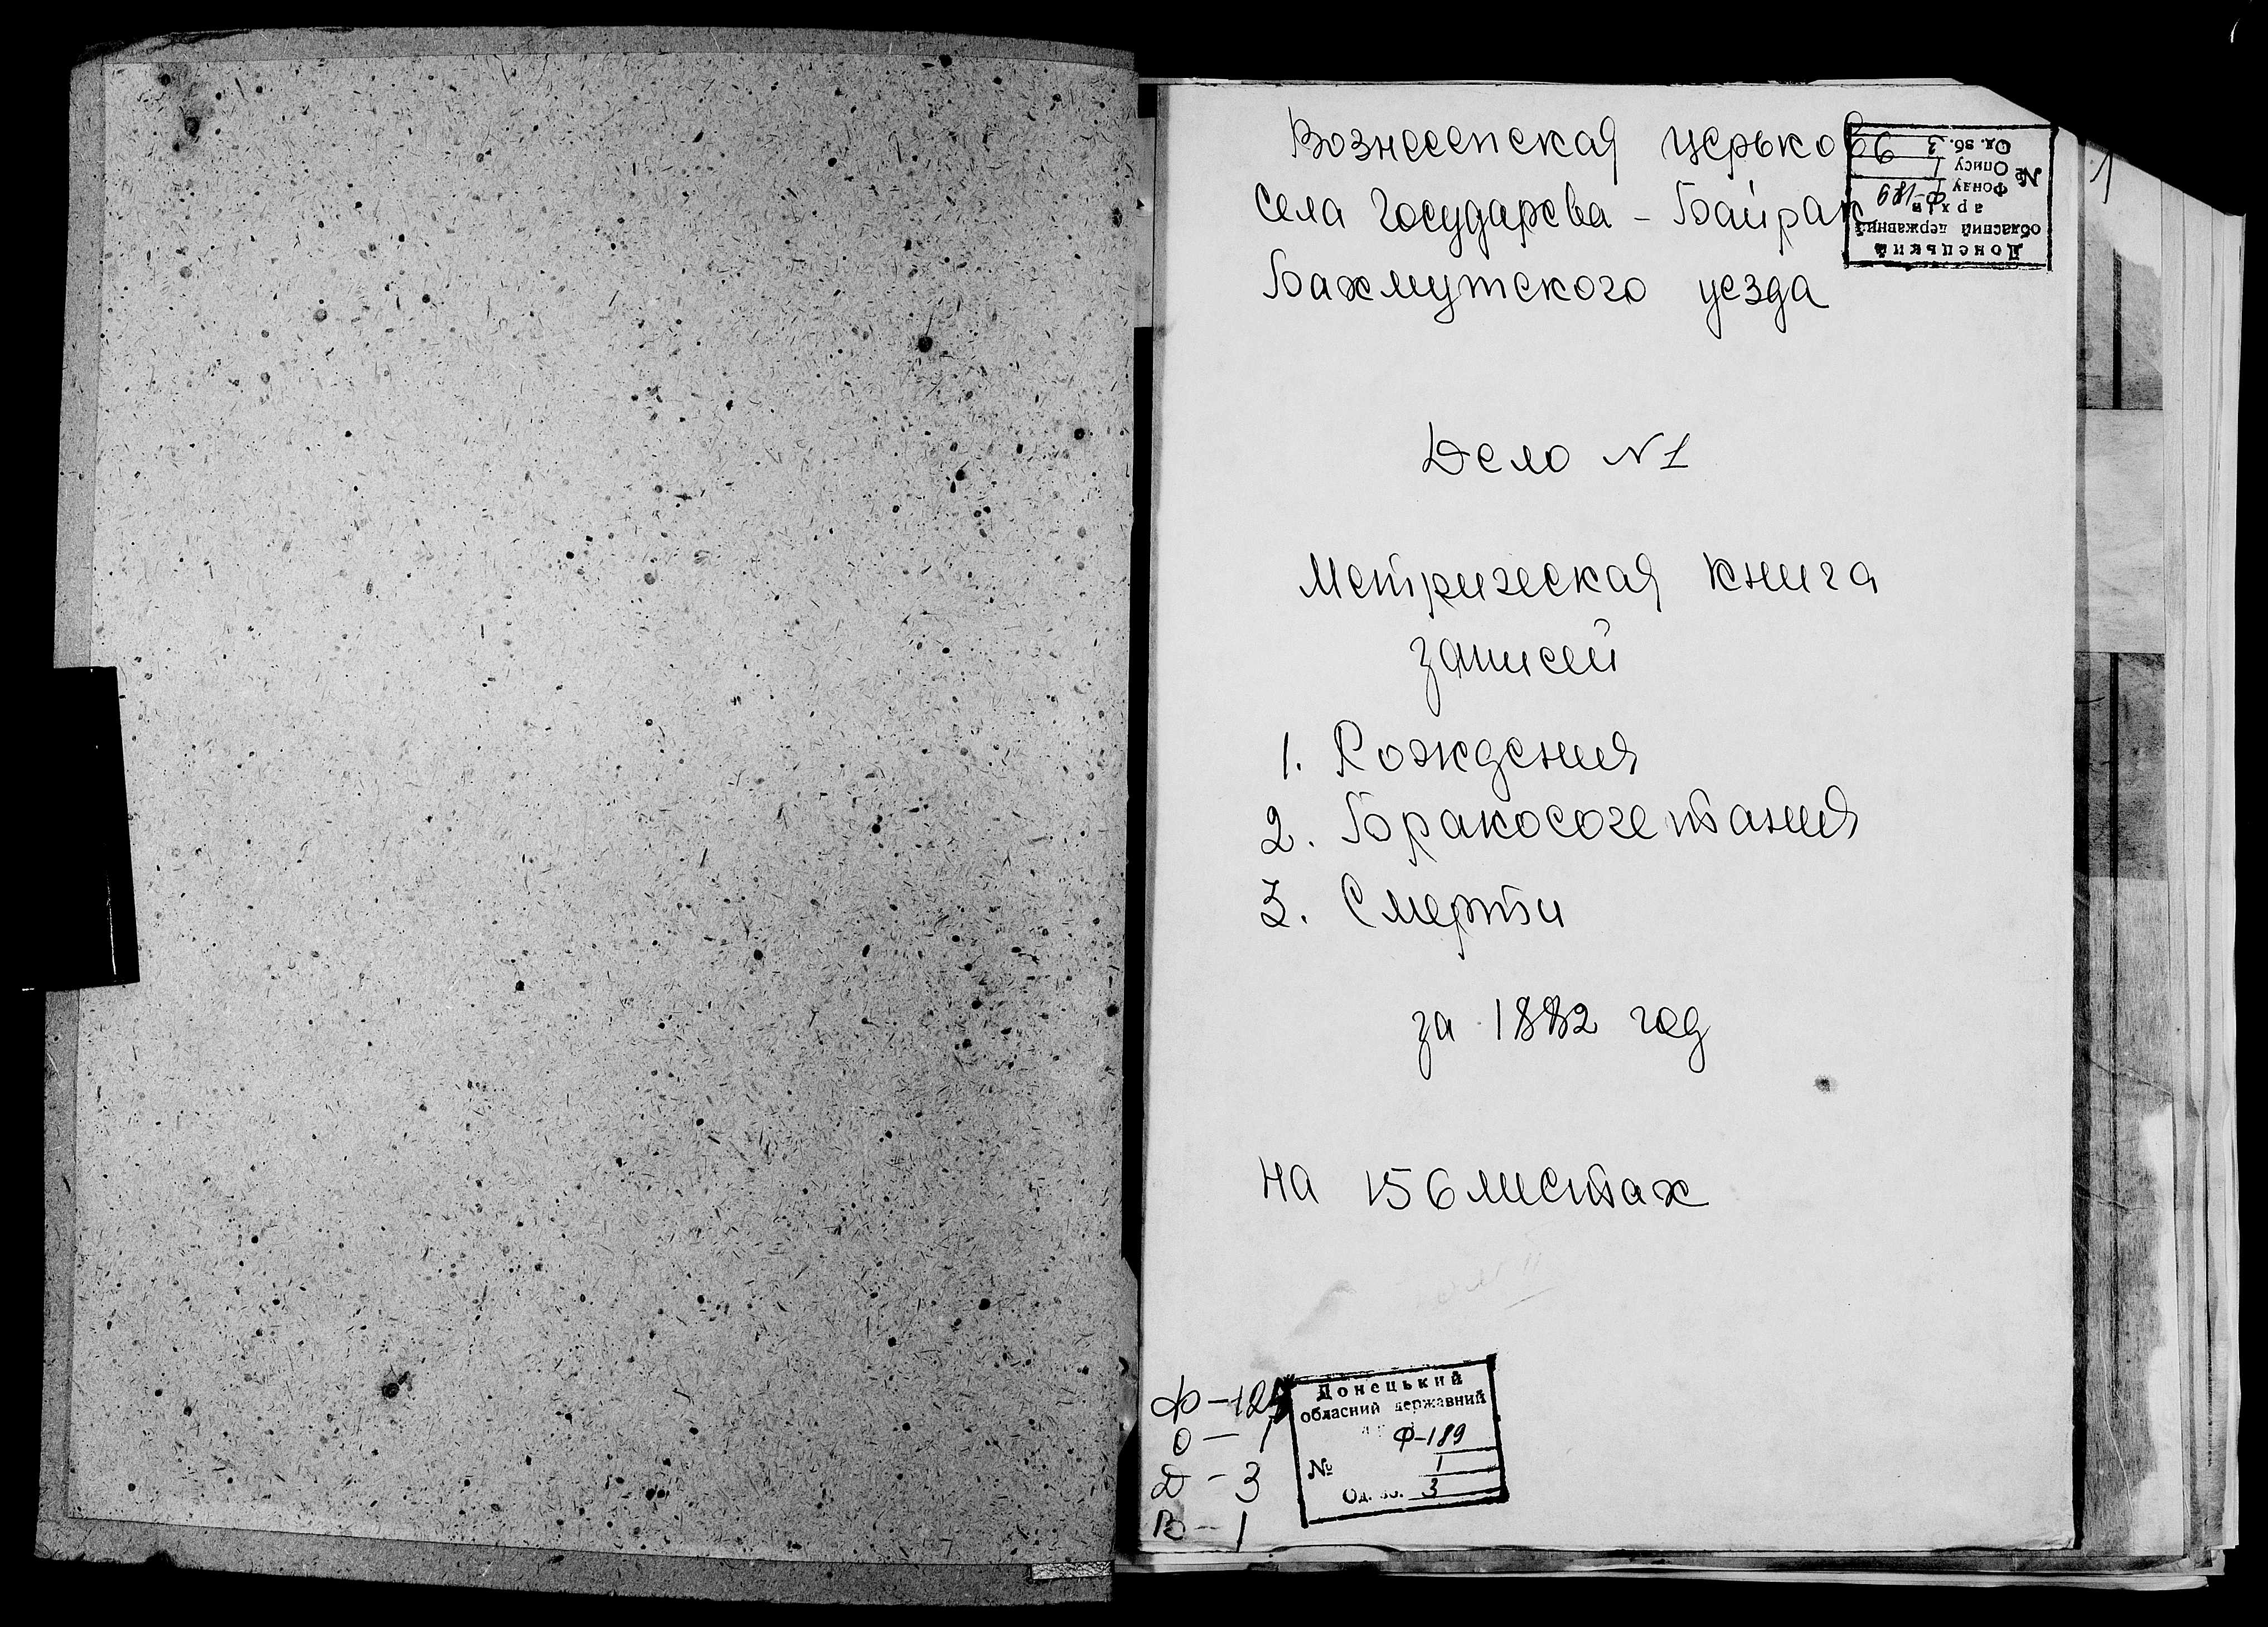 Вознесенская церьковь
села Государева - Байрак
Бахмутского уезда
Донецький
обласний державний
архів
Фонду Ф-189
№ Опису 1
Од. зб. 3
1
Дело N 1
Метрическая книга
записей
1. Рождения
2. Бракосочетания
3. Смерти
за 1882 год
на 156 листах
Ф-
О-1
Д-3
В-1
Донецький
обласний державний
Ф-189
№ 1
Од. зб. 3